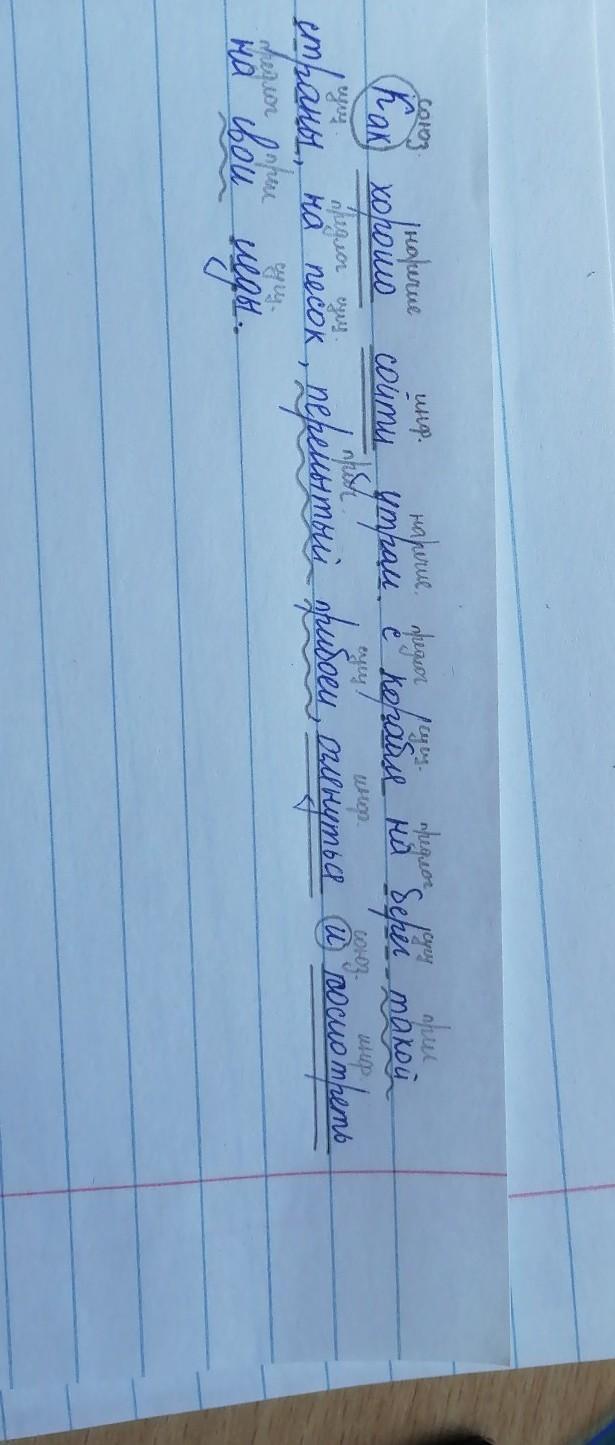 союз. наречие инф. наречие. предлог сущ. предлог сущ прил
Как хорошо сойти утром с корабля на берег такой
сущ. предлог сущ. прич. сущ инф. союз. инф.
страны, на песок, перемытый прибоем, оглянуться и посмотреть
предлог прил сущ.
на свои следы.